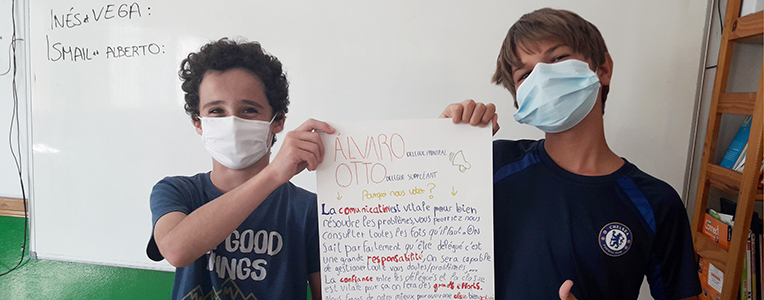 INÉS et VEGA:
ISMAIL et ALBERTO:
ÁLVARO DÉLÉGUÉ PRINCIPAL
OTTO DÉLÉGUÉ SUPPLÉANT
Pourquoi nous voter?
La comunication est vitale pour bien
résoudre les problèmes, vous pourriez nous
consulter toutes les fois qu'il faut. On
sait parfaitement qu'être délégué c'est
une grande responsabilité, On sera capable
de gestioner toute vos doutes/problèmes...
La confiance entre les délégués et la classe
est vitale pour ça on fera des grands efforts.
de notre mieux pour
GOOD
THINGS
CHELSEA